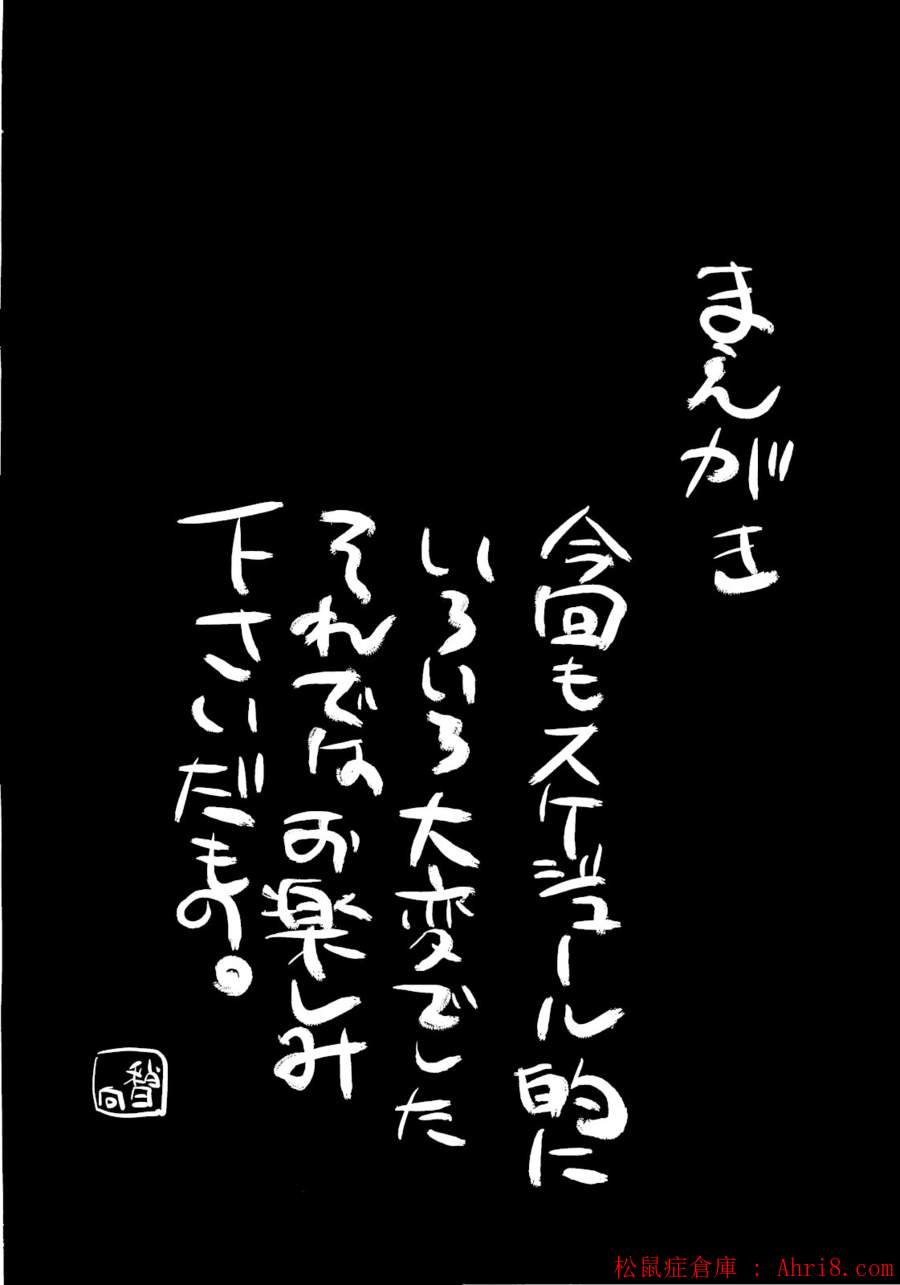 まえがき
今回もスケジュール的に
いろいろ大変でした
それではお楽しみ
下さいだもの。
松鼠症倉庫 : Ahri8.com